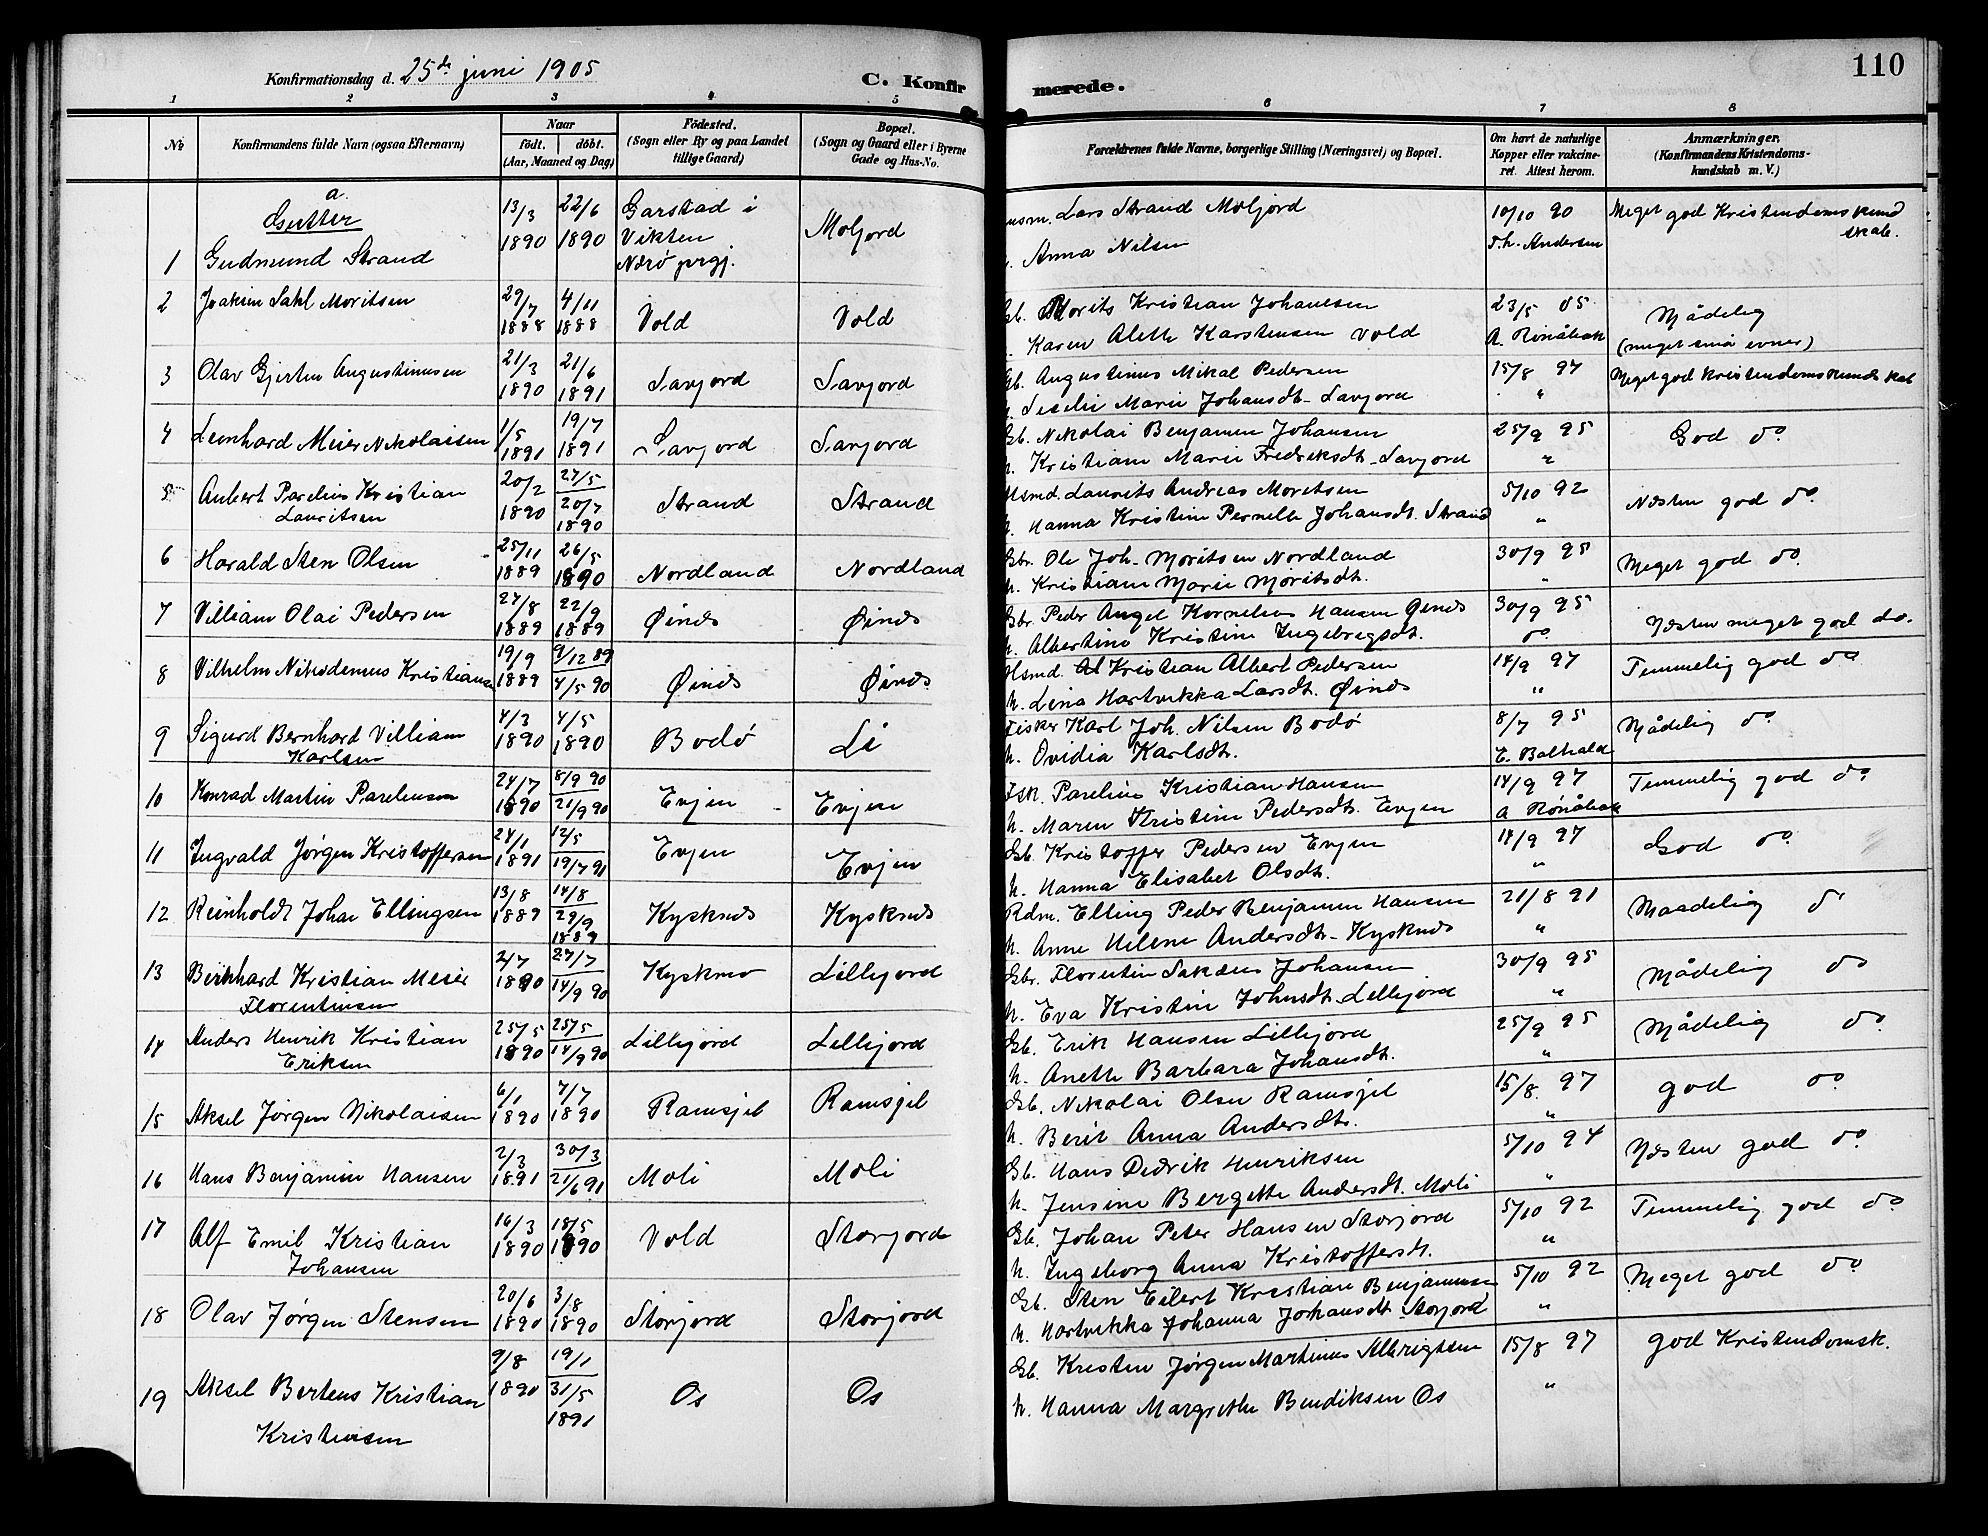 Konfirmationsdag d. 25de juni 1905
C. Konfirmerede.
110
1 2 3 4 5 6 7 8
No
Konfirmandens fulde Navn (ogsaa Efternavn)
Naar
födt. döbt.
(Aar, Maaned og Dag)
Födested.
(Sogn eller By og paa Landet
tillige Gaard)
Bopæl.
(Sogn og Gaard eller i Byerne
Gade og Hus-No.
Forældrenes fulde Navne, borgerlige Stilling (Næringsvei) og Bopæl.
Om havt de naturlige
Kopper eller vakcine-
ret. Attest herom.
Anmærkninger.
(Konfirmandens Kristendoms-
kundskab m. V.)
a.
Gutter
1 Gudmund Strand 13/3 1890 22/6 1890 Garstad i Vikten Nærö prgj. Moljord Lars Strand Moljord 10/10 90 Meget god Kristendomskundskab.
Anna Nilsen Th. Andersen
2 Joakim Dahl Moritsen 29/7 1888 4/11 1888 Vold Vold Gb. Morits Kristian Johansen 23/5 05 Mådelig
Karen Aleth Karstensen Vold A. Rönåbak (meget små evner)
3 Olav Gjertin Augustinusen 21/3 1890 21/6 1891 Savjord Savjord Gb. Augustinus Mikal Pedersen 15/8 97 Meget god Kristendomskundskab
Marie Johansdt. Savjord "
4 Leonhard Meier Nikolaisen 1/5 1891 19/7 1891 Savjord Savjord Gb. Nikolai Benjamin Johansen 25/9 95 God do
h. Kristiane Marie Fredriksdt. Savjord "
5 Aubert Parelius Kristian Lauritsen 20/2 1890 27/5 20/7 1890 Strand Strand Hsmd. Laurits Andreas Moritsen 5/10 92 Næsten god do.
h. Hanna Kristine Pernelle Johansdt. Strand "
6 Harald Sten Olsen 25/11 1889 26/5 1890 Nordland Nordland Gbr. Ole Joh. Moritsen Nordland 30/9 95 Meget god do.
h. Kristiane Marie Moritsdt. "
7 Villiam Olai Pedersen 27/8 1889 22/9 1889 Øinæs Øinæs Gbr. Peder Angel Kornelius Hansen Øinæs 30/9 95 Næsten meget god do.
h. Albertine Kristine Ingebregsdt. do
8 Vilhelm Nikodemus Kristiansen 19/9 1889 9/12 89 4/5 90 Øinæs Øinæs Hsmd. Kristian Albert Pedersen 14/9 97 Temmelig god do
h. Lina Hartvikka Larsdt. Øinæs "
9 Sigurd Bernhard Villiam Karlsen 4/3 1890 4/5 1890 Bodö Li Fisker Karl Joh. Nilsen Bodö 8/7 95 Mådelig do
h. Ovidia Karlsdt. E. Bolhald
10 Konrad Martin Pareliusen 24/7 1890 8/9 90 21/9 90 Evjen Evjen Fsk. Parelius Kristian Hansen 14/9 97 Temmelig god do
h. Maren Kristine Pedersdt. Evjen A Rönåbak
11 Ingvald Jørgen Kristoffersen 24/1 1891 12/5 19/7 91 Evjen Evjen Gb. Kristoffer Pedersen Evjen 14/9 97 God do
h. Hanna Elisabet Olsdt. "
12 Reinholdt Johan Ellingsen 13/8 1889 14/8 29/9 1889 Kysknæs Kysknæs Rdm. Elling Peder Benjamin Hansen 21/8 91 Maadelig do
h. Anne Helene Andersdt. Kysknæs "
13 Bernhard Kristian Meier Florentinsen 2/7 1890 27/7 14/9 90 Kyskmo Lillejord Gbr. Florentin Johansen 30/9 95 Mådelig do
h. Eva Kristine Johnsdt. Lillejord "
14 Anders Henrik Kristian Eriksen 25/5 1890 25/5 14/9 90 Lillejord Lillejord Gb. Erik Hansen Lillejord 25/9 95 Mådelig do
h. Aneth Barbara Johansdt. "
15 Aksel Jørgen Nikolaisen 6/1 1890 7/7 1890 Ramsjel Ramsjel Gb. Nikolai Olsen Ramsjel 15/8. 97 god do
h. Berit Anna Andersdt. "
16 Hans Benjamin Hansen 2/3 1891 30/3 21/6 91 Moli Moli Gb. Hans Didrik Henriksen 5/10 94 Næsten god do
h. Jensine Bergette Andersdt. Moli "
17 Alf Emil Kristian Johansen 16/3 1890 18/5 1890 Vold Storjord Gb. Johan Peter Hansen Storjord 5/10 92 Temmelig god do
h. Ingeborg Anna Kristoffersdt. "
18 Olav Jørgen Stensen 20/6 1890 3/8 1890 Storjord Storjord Gb. Sten Eilert Kristian Benjaminsen 5/10 92 Meget god do
h. Hartvikka Johanna Johansdt. Storjord "
19 Aksel Berteus Kristian Kristensen 9/8 1890 19/1 31/5 1891 Os Os Gb. Kristen Jørgen Martinus Albrigtsen 15/8 97 god Kristendomsk.
h. Hanna Margrethe Bendiksen Os "